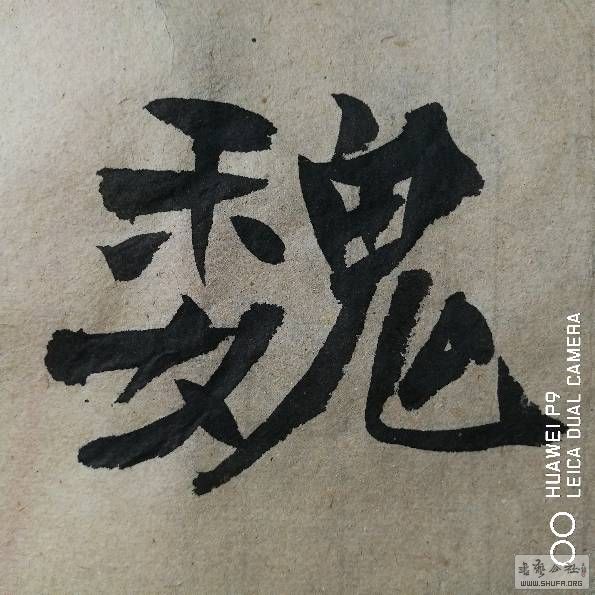 魏
HUAWEI P9
LEICA DUAL CAMERA
书艺公社
WWW.SHUFA.ORG